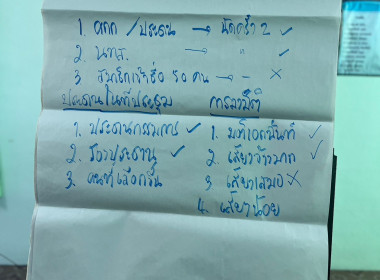 1. คกก / ประธาน → นัดครั้ง 2 ✓
2. นทส. → " ✓
3. สมาชิกเข้าชื่อ 50 คน → - ✗
ประธานในที่ประชุม การลงมติ
1. ประธานกรรมการ ✓ 1. มติเอกฉันท์ ✓
2. รองประธาน ✓ 2. เสียงข้างมาก ✓
3. คนที่เลือกขึ้น 3 เสียงเสมอ ✗
4. เสียงน้อย